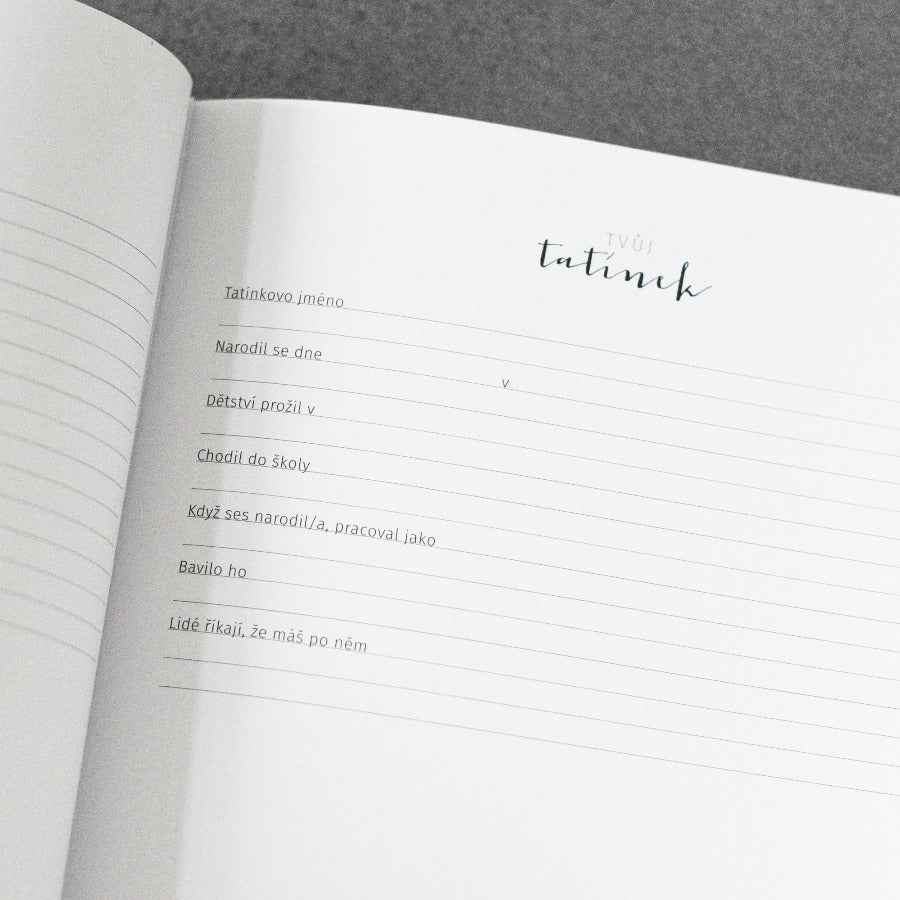 TVŮJ
tatínek
Tatínkovo jméno
Narodil se dne v
Dětství prožil v
Chodil do školy
Když ses narodil/a, pracoval jako
Bavilo ho
Lidé říkají, že máš po něm